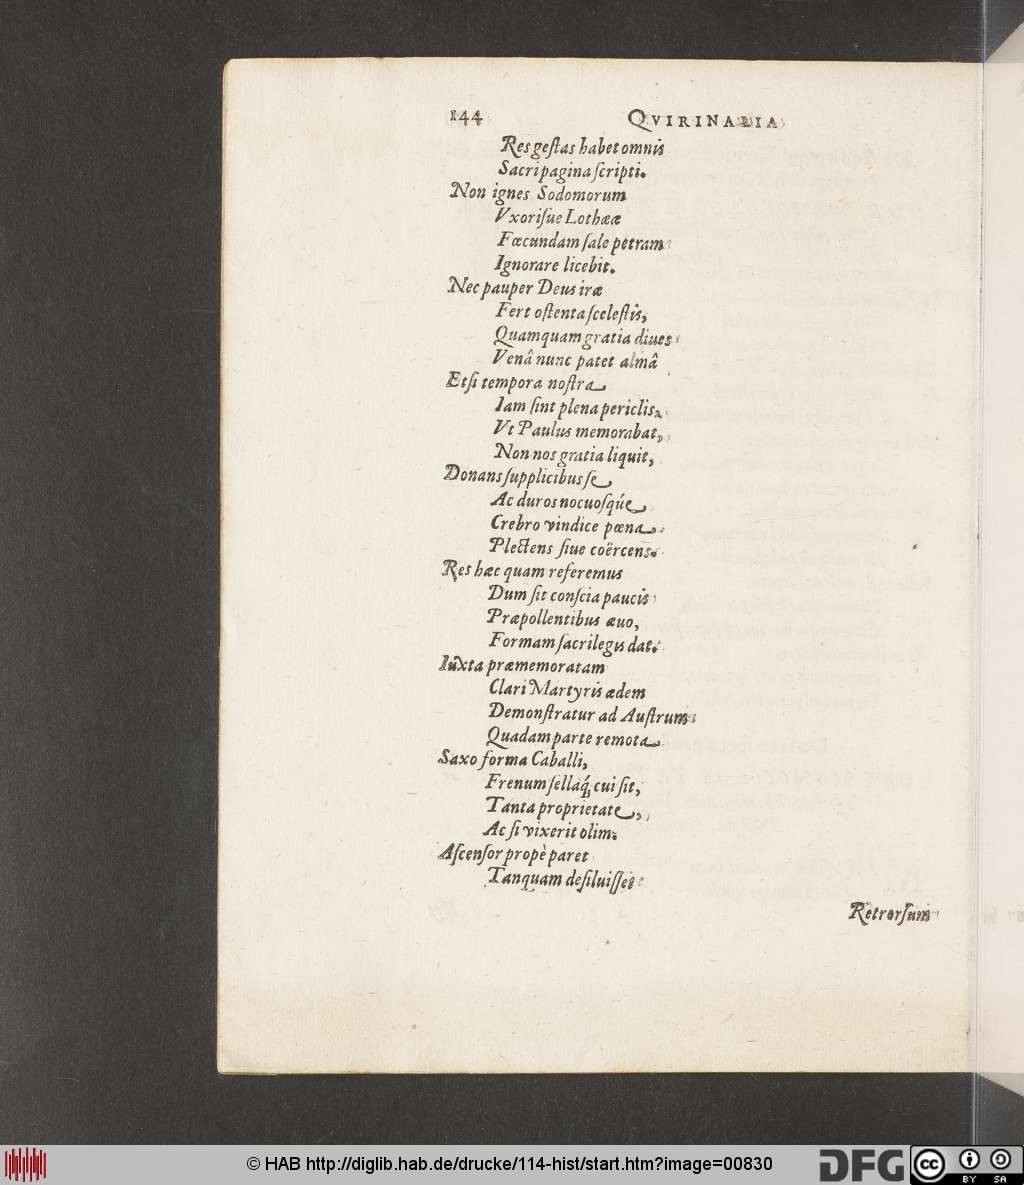 144 QVIRINALIA
Res geſtas habet omnis
Sacri pagina ſcripti.
Non ignes Sodomorum
Vxoriſue Lothææ
Fœcundam ſale petram
Ignorare licebit.
Nec pauper Deus iræ
Fert oſtenta ſceleſtis,
Quamquam gratia diues
Venâ nunc patet almâ
Etſi tempora noſtra
Iam ſint plena periclis,
Vt Paulus memorabat,
Non nos gratia liquit,
Donans ſupplicibus ſe
Ac duros nocuoſq́ue
Crebro vindice pœna
Plectens ſiue coërcens.
Res hæc quam referemus
Dum ſit conſcia paucis
Præpollentibus æuo,
Formam ſacrilegis dat.
Iuxta præmemoratam
Clari Martyris ædem
Demonſtratur ad Auſtrum
Quadam parte remota
Saxo forma Caballi,
Frenum ſellaq́; cui ſit,
Tanta proprietate,
Ac ſi vixerit olim.
Aſcenſor propè paret
Tanquam deſiluiſſet
Retrorſum
© HAB http://diglib.hab.de/drucke/114-hist/start.htm?image=00830
DFG
cc BY SA